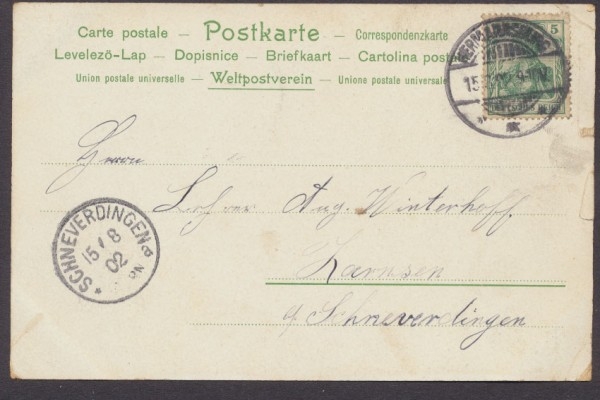 Carte postale — Postkarte — Correspondenzkarte
Levelezö-Lap — Dopisnice — Briefkaart — Cartolina postale
Union postale universelle — Weltpostverein — Unione postale universale
5
15. 02
Herrn
Lehrer Aug. Winterhoff.
b/ Schneverdingen
SCHNEVERDINGEN
15/8
02